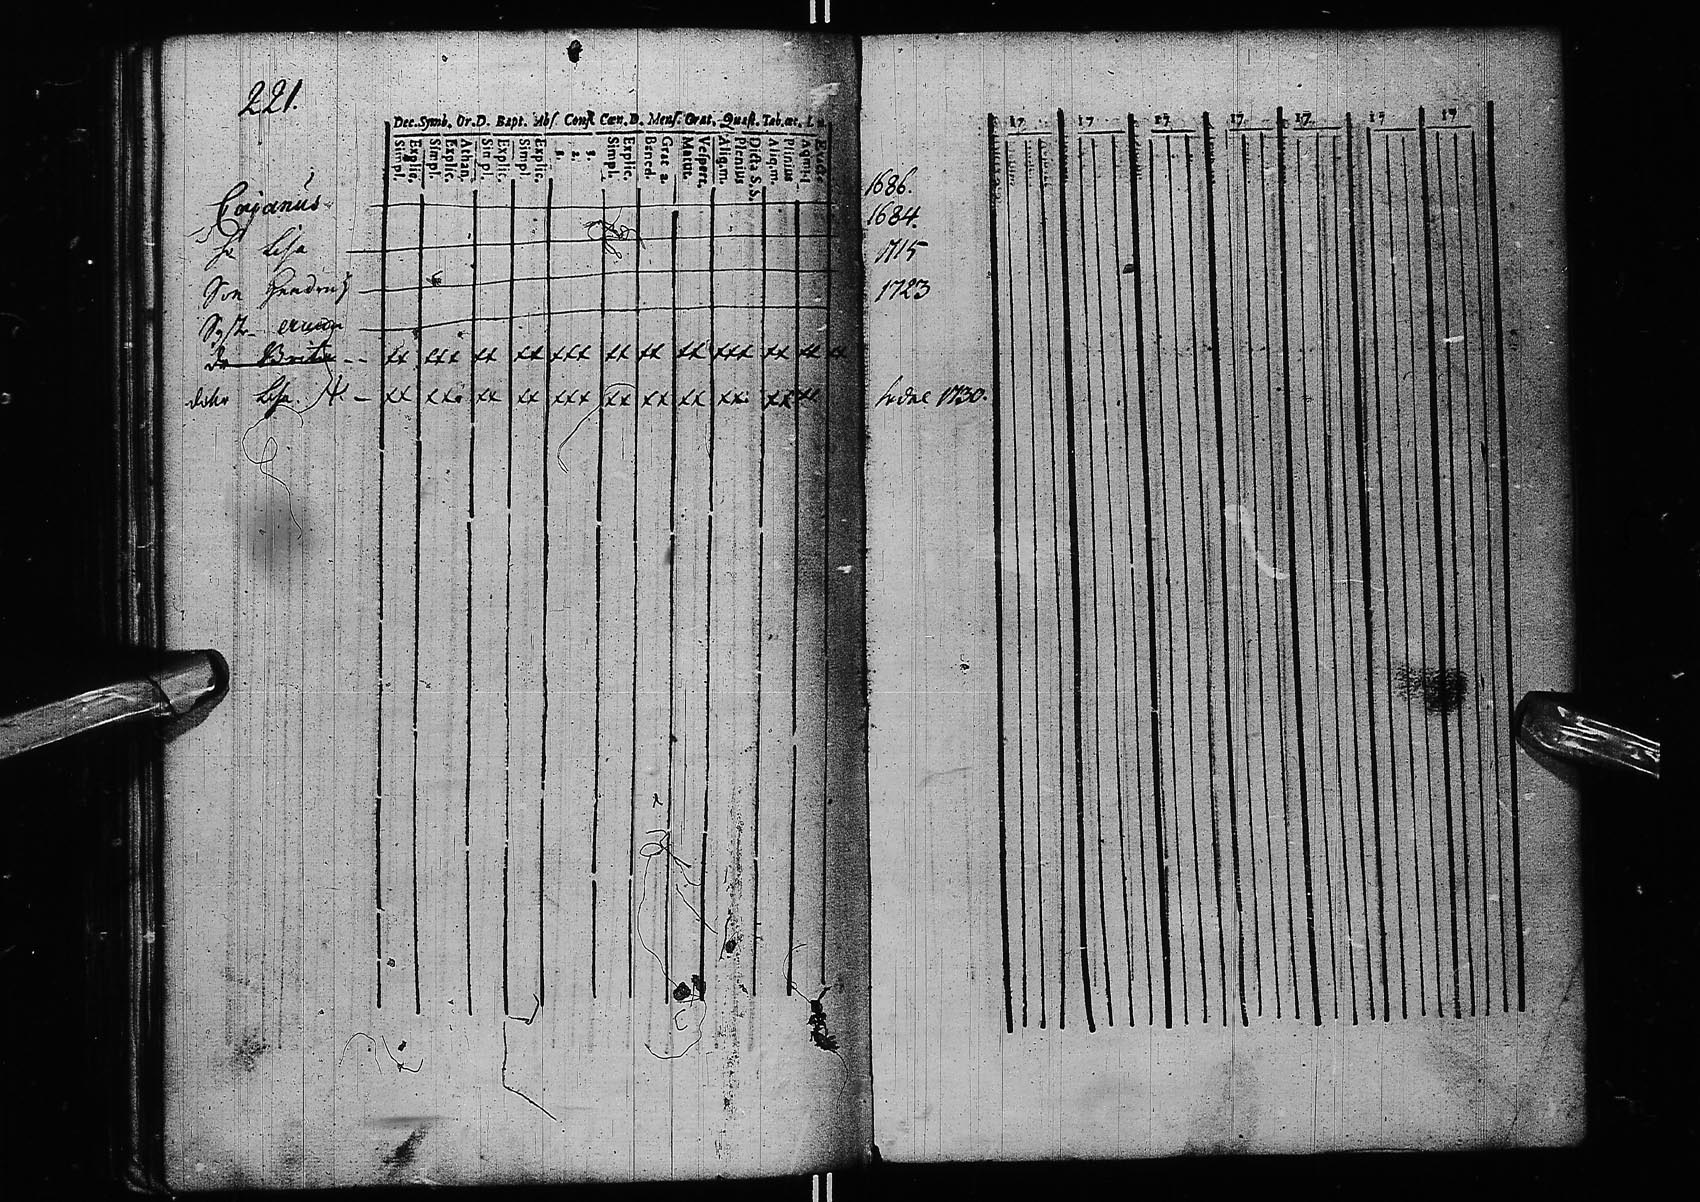 221.
Dec. Symb. Or. D. Bapt. Abs. Conf. Cœn. D. Mens. Orat. Quæst. Tab. œc.
Simpl. Explic. Simpl. Explic. Athan. Simpl. Explic. Simpl. Explic. 1. 2. 3. Simpl. Explic. Bened. Grat. 2. Matut. Vespert. Aliq. m. Plenius Dicta S. S. Aliq. m. Plenius
Cajanus
h: Lisa
Son Hendrich
dr Brita -- xx xxx xx xx xxx xx xx xx xxx xx xx xx
Lisa xx xxx xx xx xxx xx xx xx xx xx xx
17 17 17 17 17 17 17
1686.
1684.
1715
1723
1730.